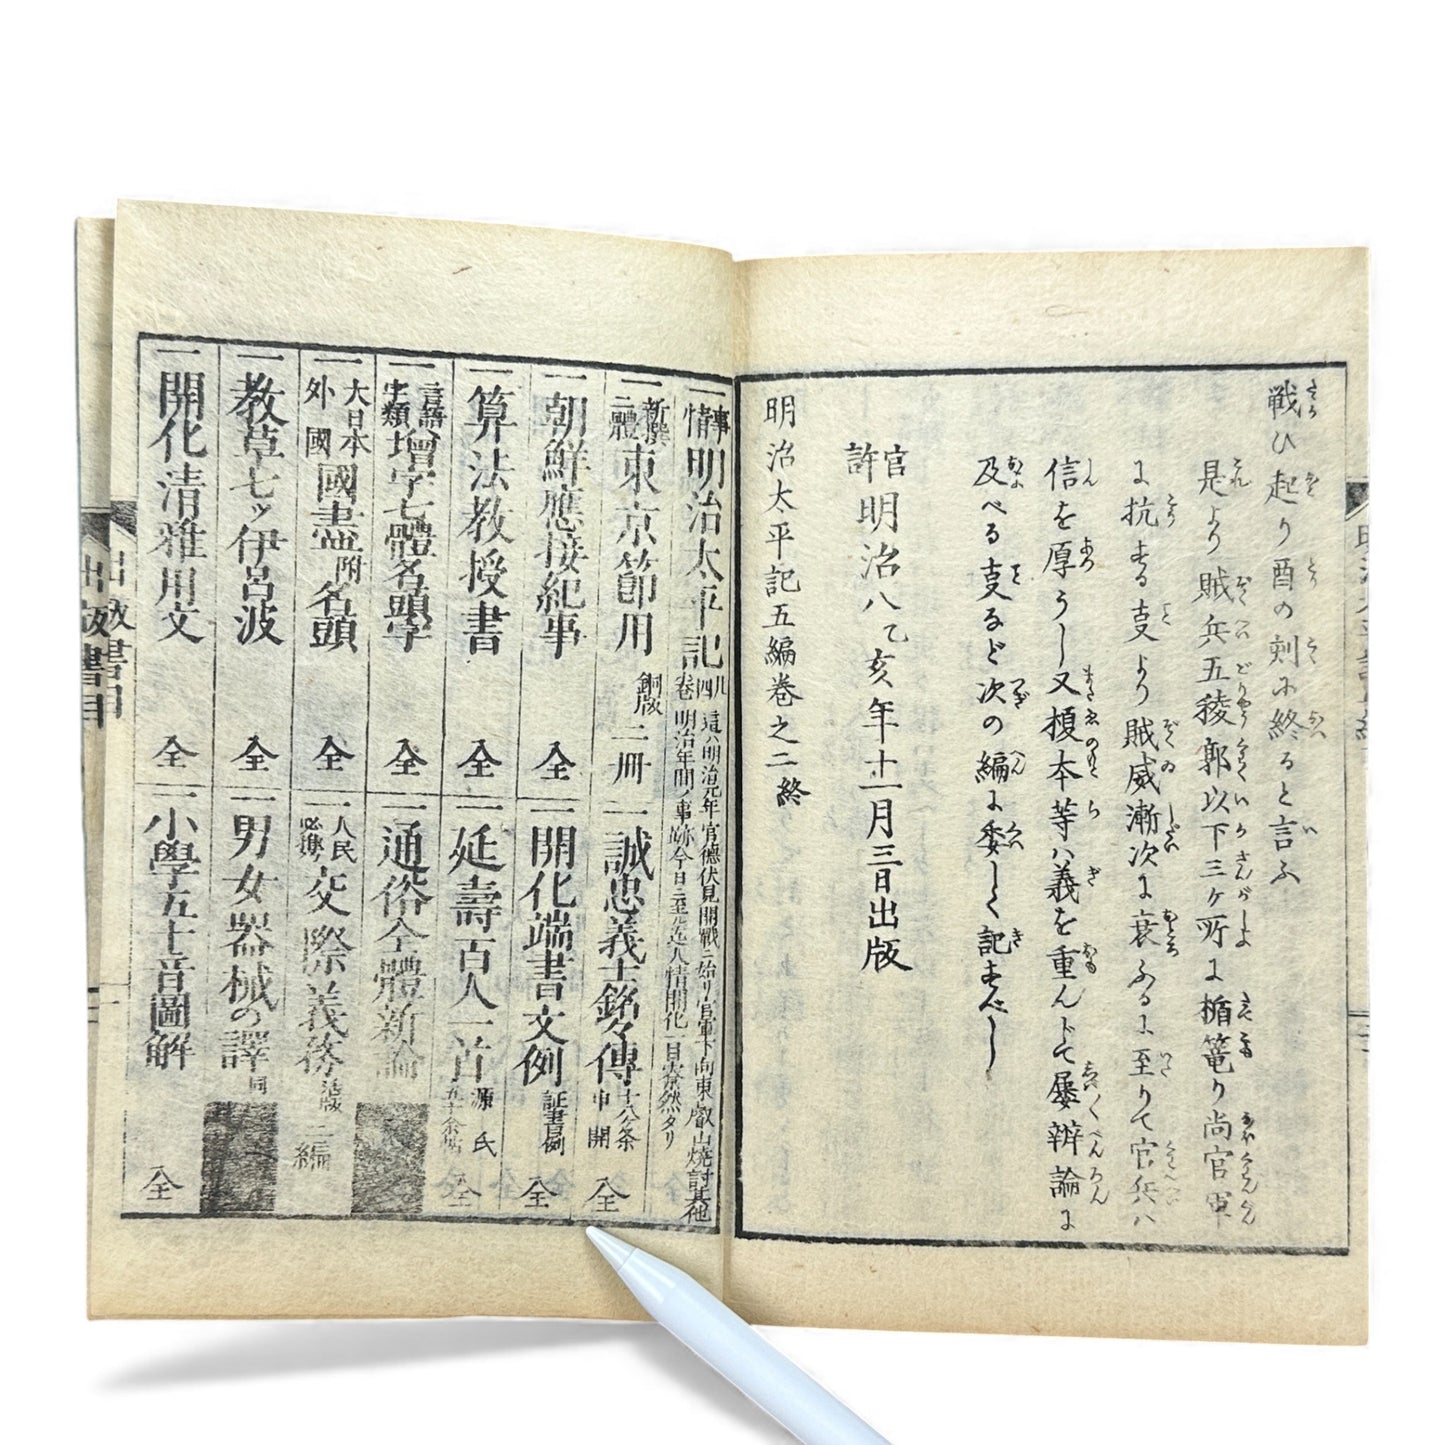 戦ひ起り酉の刻に終ると言ふ
是より賊兵五稜郭以下三ヶ所に楯篭り尚官軍
に抗する支より賊威漸次に衰ふるに至りて官兵ハ
信を厚うし又榎本等ハ義を重んじて屡辨論に
及べる支など次の編に委しく記すべし
官許 明治八乙亥年十一月三日出版
明治太平記五編巻之二終
一事情明治太平記 四卷 這ハ明治元年官德伏見開戰ニ始リ官軍下向東叡山燒討其他
明治年間ノ事跡今日ニ至ル迄人情開化一目嘹然タリ
一新撰二體東京節用 銅版 二冊
一誠忠義士銘々傳 全
一朝鮮應接紀事 全
一開化端書文例 証書例 全
一算法教授書 全
一延壽百人一首 源氏五十余帖 全
一言語字類增字七體名頭字 全
一通俗全體新論
一大日本外國國盡附名頭 全
一人民必携交際義務 二編
一教草七ッ伊呂波 全
一男女器械の譯 同
一開化清雅用文 全
一小學五十音圖解 全
出版書目
出版書目